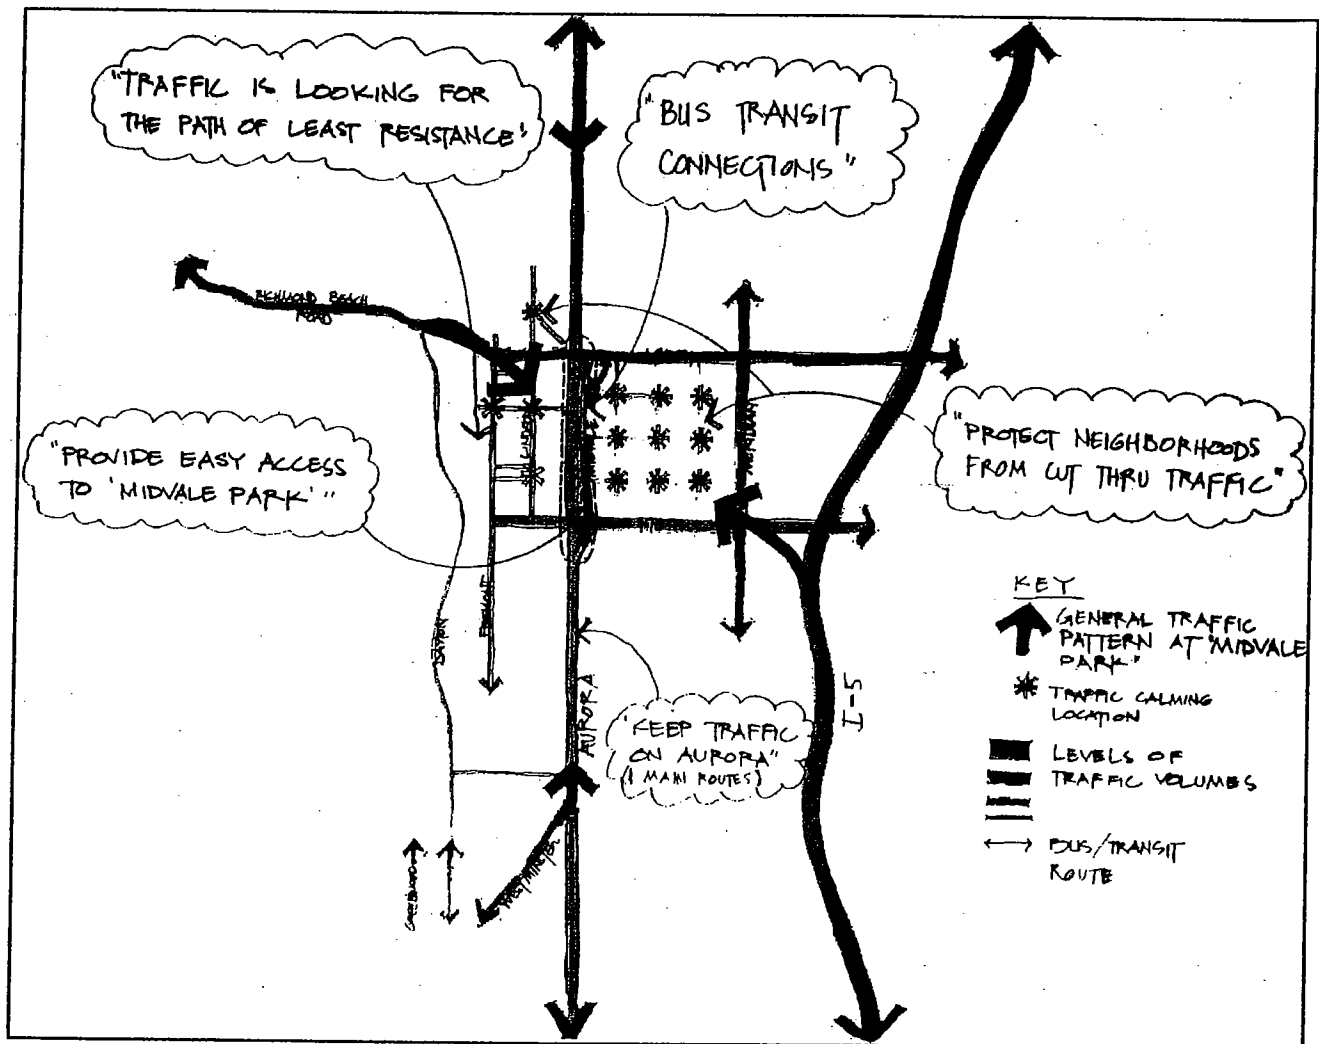 "TRAFFIC IS LOOKING FOR
THE PATH OF LEAST RESISTANCE"
"BUS TRANSIT
CONNECTIONS"
RICHMOND BEACH
ROAD
"PROVIDE EASY ACCESS
TO 'MIDVALE PARK'"
LINDEN
MIDVALE
MERIDIAN
"PROTECT NEIGHBORHOODS
FROM CUT THRU TRAFFIC"
DAYTON
FREMONT
AURORA
"KEEP TRAFFIC
ON AURORA"
(MAIN ROUTES)
I-5
WESTMINSTER
GREENWOOD
KEY
GENERAL TRAFFIC
PATTERN AT "MIDVALE
PARK"
TRAFFIC CALMING
LOCATION
LEVELS OF
TRAFFIC VOLUMES
BUS/TRANSIT
ROUTE